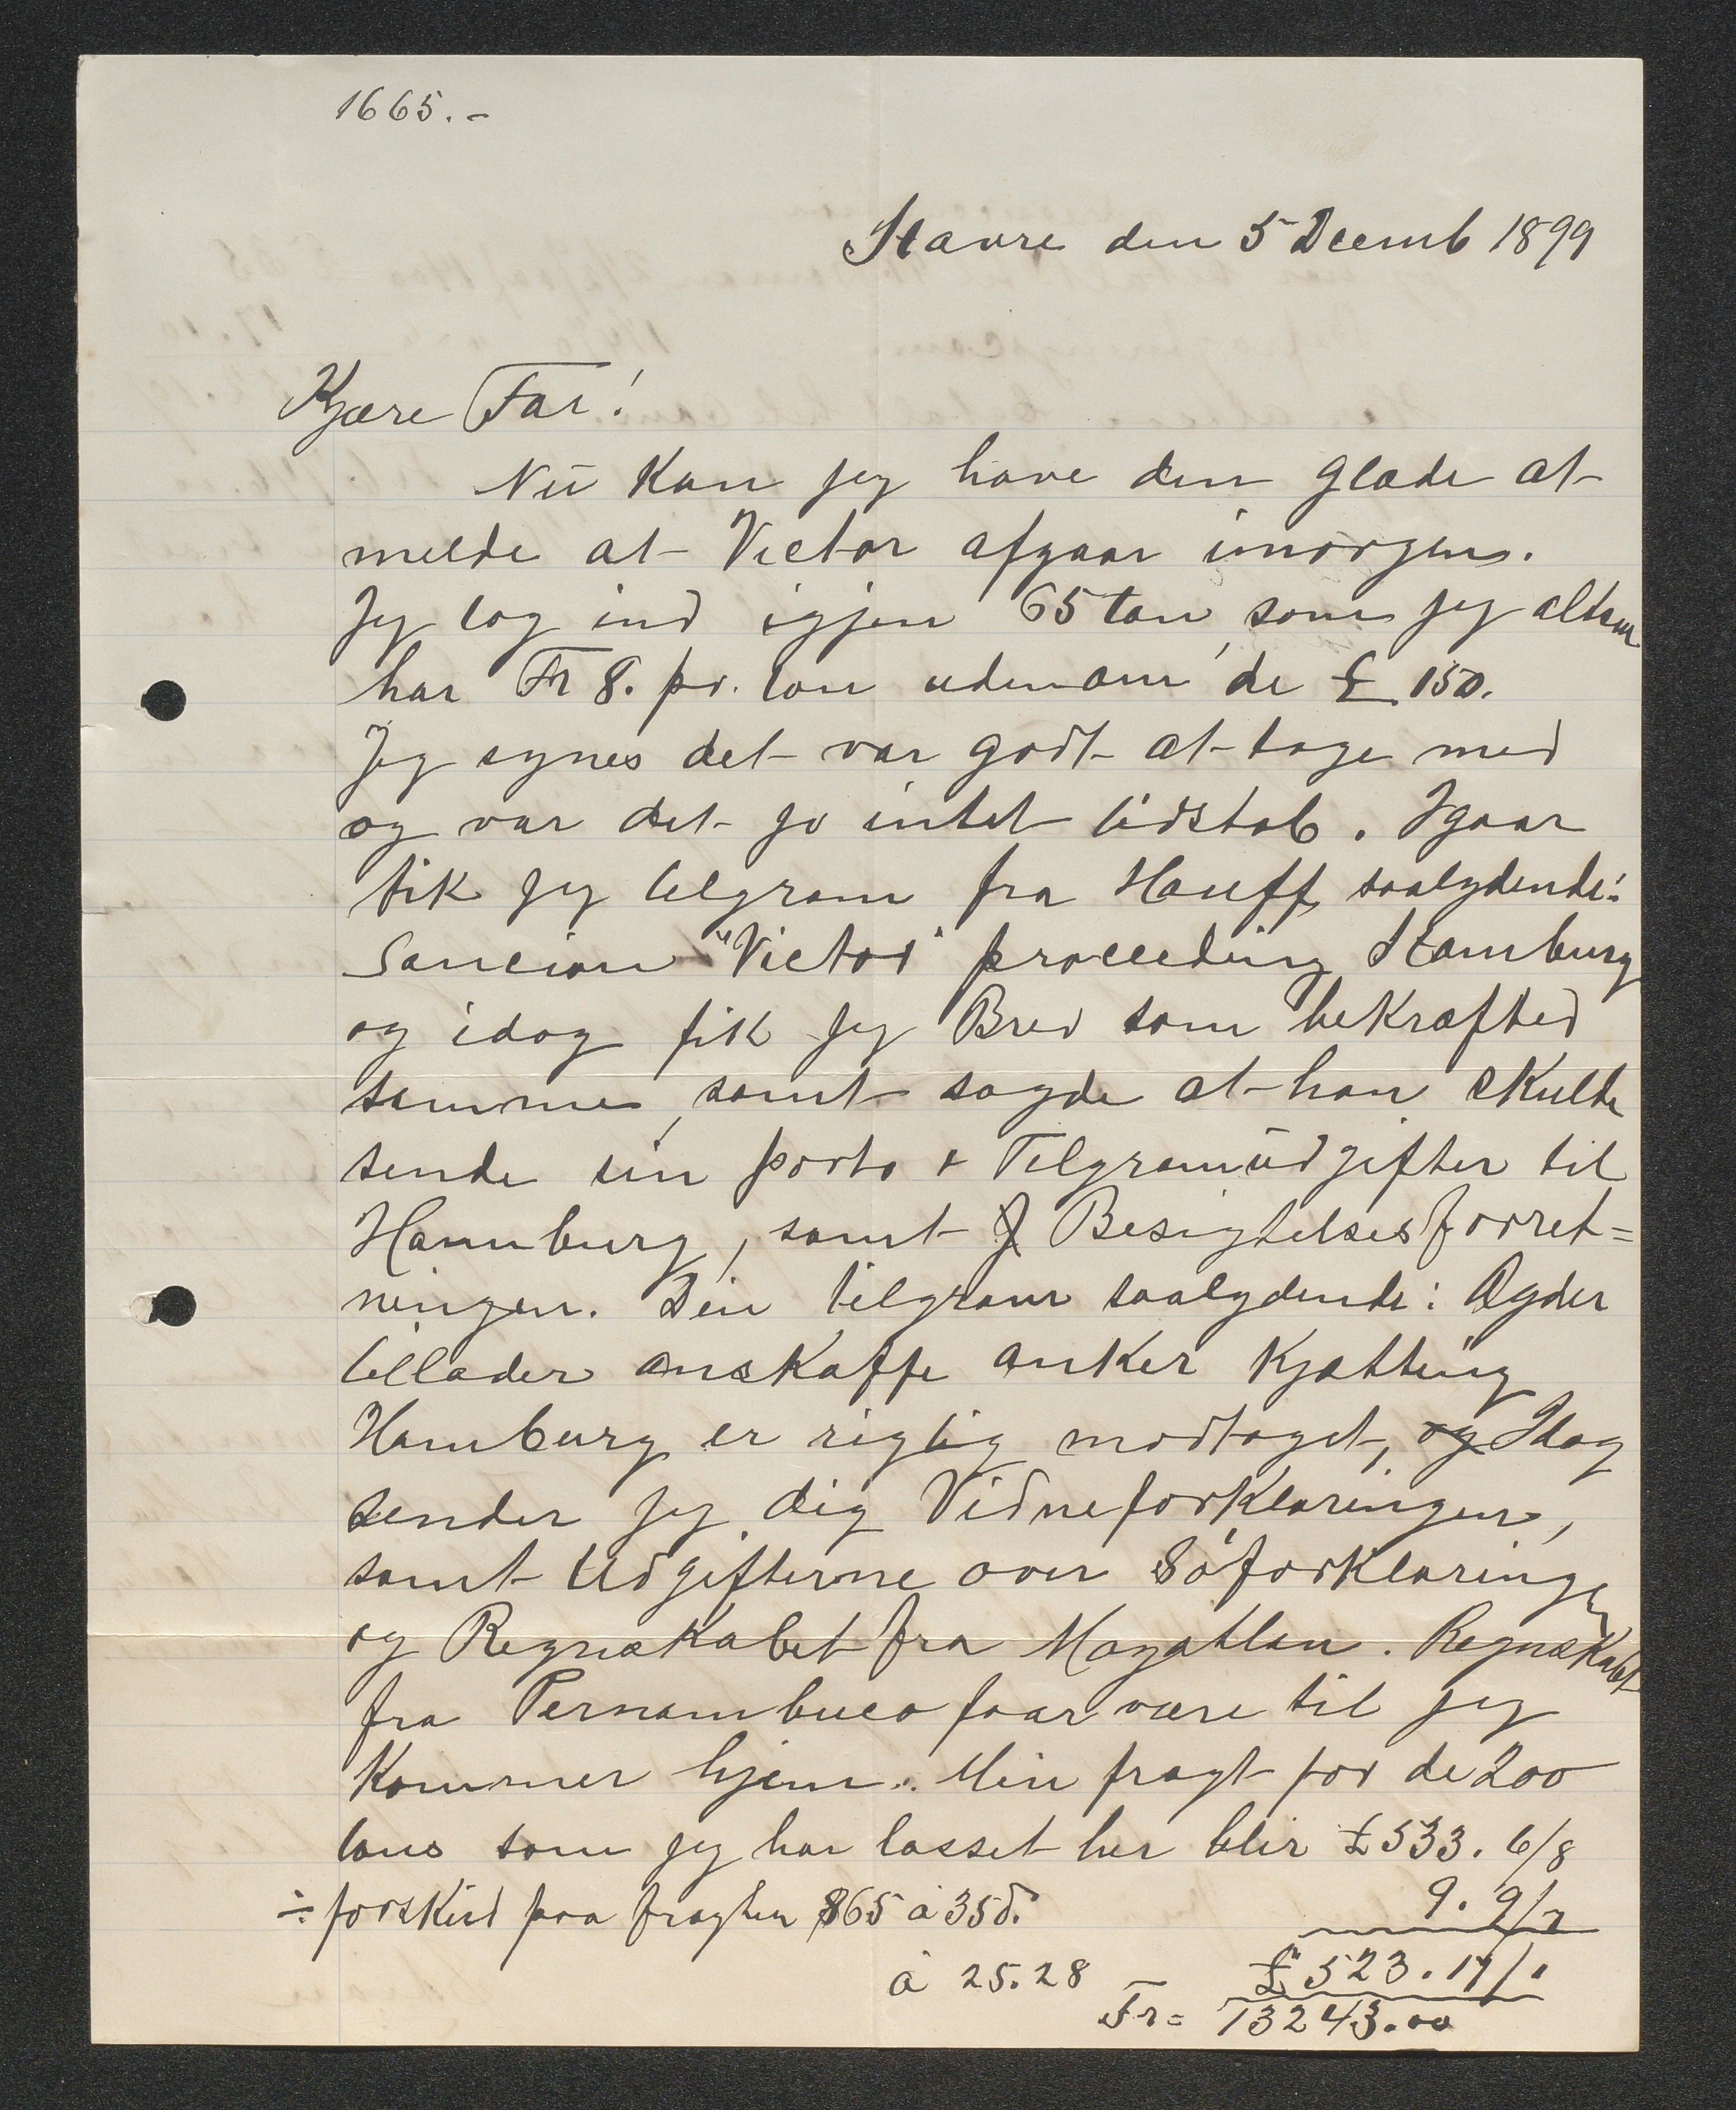 1665.-
Havre den 5 Decemb 1899
Kjære Far!
Nu kan jeg have den glæde at
melde at Victor afgaar imorgen.
Jeg tog ind igjen 65 ton, som jeg altsaa
har Fr 8. pr. ton udenom de £ 150.
Jeg synes det var godt at tage med
og var det jo intet tidstab. Igaar
fik jeg telgram fra Hauff, saalydende:
Sancion "Victor" proceeding Hamburg
og idag fik jeg Brev som bekræfted
samme, samt sagde at han skulde
sende sin porto & Telgramudgifter til
Hamburg, samt Besigtelsesforret=
ningen. Din telgram saalydende: Agder
tillader anskaffe anker kjætting
Hamburg er rigtig modtaget, og Idag
sender jeg dig Vidneforklaringen,
samt Udgifterne over Søforklaringen
og Regnskabet fra Mazatlan. Regnskabet
fra Pernambuco faar være til jeg
kommer hjem. Min fragt for de 200
tons som jeg har losset her blir £ 533. 6/8
÷ forskud paa fragten $65 à 35d. 9. 9/7
à 25.28 — £ 523. 17/1
Fr = 13243.00